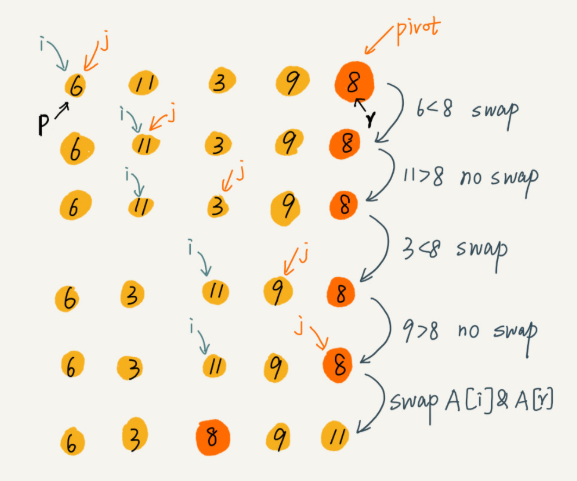 i j pivot
6 11 3 9 8
p r 6<8 swap
i j
6 11 3 9 8
11>8 no swap
i j
6 11 3 9 8
3<8 swap
i j
6 3 11 9 8
9>8 no swap
i j
6 3 11 9 8
swap A[i]&A[r]
6 3 8 9 11